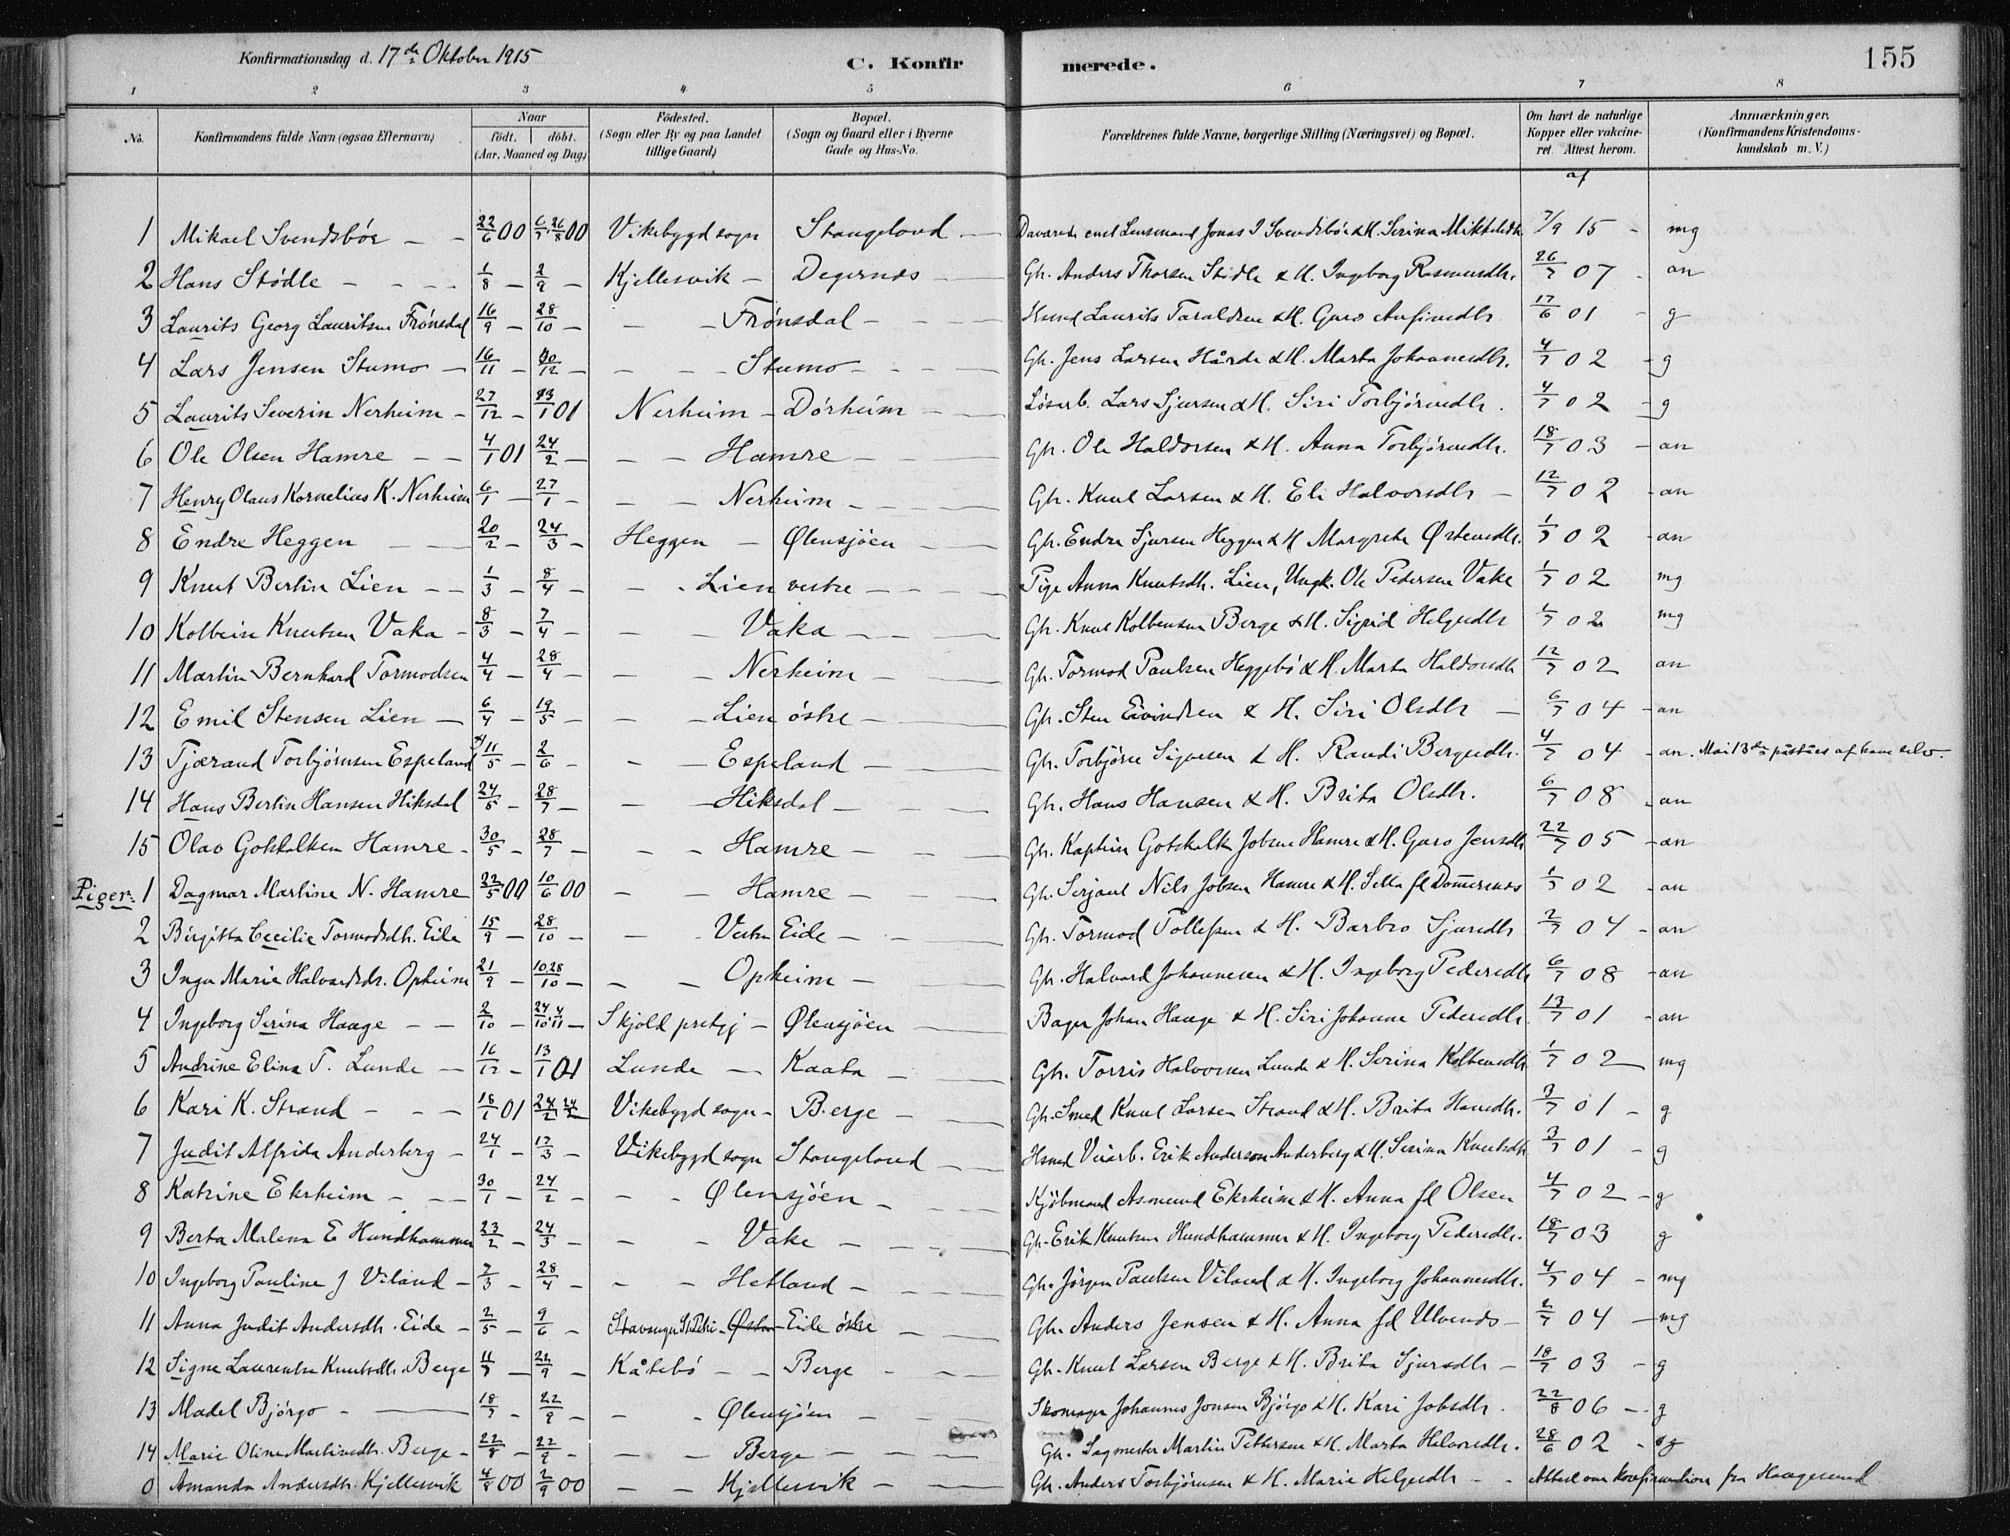 Konfirmationsdag d. 17de Oktober 1915
C. Konfirmerede.
155
1 2 3 4 5 6 7 8
No. Konfirmandens fulde Navn (ogsaa Efternavn) Naar født. døbt. (Aar, Maaned og Dag) Fødested. (Sogn eller By og paa Landet tillige Gaard) Bopæl. (Sogn og Gaard eller i Byerne Gade og Hus-No. Forældrenes fulde Navne, borgerlige Stilling (Næringsvei) og Bopæl. Om havt de naturlige Kopper eller vakcineret. Attest herom. Anmærkninger. (Konfirmandens Kristendomskundskab m. V.)
af
1 Mikael Svendsbøe 22/6 00 6/7, 26/8 00 Vikebygd sogn Stangeland Daværende const Lensmand Jonas J Svendsbøe & H. Serina Mikkelsdtr 7/9 15 mg
2 Hans Stødle 1/8 2/9 Kjellesvik Degernes Gh. Anders Thorsen Stødle & H. Ingeborg Rasmusdtr. 26/7 07 an
3 Laurits Georg Lauritsen Frønsdal 16/9 28/10 Frønsdal Husmd Laurits Taraldsen & H. Guro Anfinsdtr 17/6 01 g
4 Lars Jensen Stumo 16/11 30/12 Stumo Gh. Jens Larsen Hårde & H. Marta Johannesdtr. 4/7 02 g
5 Laurits Severin Nerheim 27/12 13/1 01 Nerheim Dørheim Løsarb. Lars Sjursen & H. Siri Torbjørnsdtr. 4/7 02 g
6 Ole Olsen Hamre 4/1 01 24/2 Hamre Gh. Ole Haldorsen & H. Anna Torbjørnsdtr. 18/7 03 an
7 Henry Olaus Kornelius K. Nerheim 6/1 27/1 Nerheim Gh. Knut Larsen & H. Eli Halvorsdtr 12/7 02 an
8 Endre Heggen 20/2 24/3 Heggen Ølensjøen Gh. Endre Sjursen Heggen & H Margreta Østensdtr. 1/7 02 an
9 Knut Bertin Lien 1/3 8/4 Lien vestre Pige Anna Knutsdtr. Lien, Ungk. Ole Pedersen Vake 1/7 02 mg
10 Kolbein Knutsen Vaka 8/3 7/4 Vaka Gh. Knut Kolbensen Berge & H. Sigrid Helgesdtr 1/7 02 mg
11 Martin Bernhard Tormodsen 4/4 28/4 Nerheim Gh. Tormod Paulsen Heggebø & H. Marta Haldorsdtr 12/7 02 an
12 Emil Stensen Lien 6/4 19/5 Lien østre Gh. Sten Eivindsen & H. Siri Olsdtr 6/7 04 an
13 Tjærand Torbjørnsen Espeland 11/5 2/6 Espeland Gh. Torbjørn Sigvesen & H. Randi Bergesdtr. 4/7 04 an. Mai 13de påståes af ham selv.
14 Hans Bertin Hansen Hiksdal 24/5 28/7 Hiksdal Gh. Hans Hansen & H. Brita Olsdtr. 6/7 08 an
15 Olav Gotskalksen Hamre 30/5 28/7 Hamre Gh. Kaptein Gotskalk Jobsen Hamre & H. Guro Jensdtr 22/7 05 an
Piger: 1 Dagmar Martine N. Hamre 22/5 00 10/6 00 Hamre Gh. Serjant Nils Jobsen Hamre & H. Sella fd Dommersnes 1/7 02 an
2 Birgitta Cecilie Tormodsdtr. Eide 15/9 28/10 Vestre Eide Gh. Tormod Tollefsen & H. Barbro Sjursdtr 2/7 04 an
3 Inga Marie Halvardsdtr. Opheim 21/9 10.28/10 Opheim Gh. Halvard Johannesen & H. Ingeborg Pedersdtr 6/7 08 an
4 Ingeborg Serina Hauge 2/10 24/10, 4/11 Skjold prstgj Ølensjøen Bager Johan Hauge & H. Siri Johanne Pedersdtr. 13/7 01 an
5 Andrine Elina T. Lunde 16/12 13/1 01 Lunde Kaata Gh. Torris Halvorsen Lunde & H. Serina Kolbensdtr 1/7 02 mg
6 Kari K. Strand 18/1 01 24/2 24/2 Vikebygd sogn Berge Gh. Smed Knut Larsen Strand & H. Brita Hansdtr. 3/7 01 g
7 Judit Alfrida Anderberg 24/1 17/3 Vikebygd sogn Stangeland Husmd Veiarb. Erik Anderson Anderberg & H. Serina Knutsdtr 3/7 01 g
8 Katrine Ekrheim 30/1 24/2 Ølensjøen Kjøbmand Asmund Ekrheim & H. Anna fd Olsen 4/7 02 g
9 Berta Malena E Hundhammer 23/2 24/3 Vake Gh. Erik Knutsen Hundhammer & H. Ingeborg Pedersdtr. 18/7 03 g
10 Ingeborg Pauline J Viland 7/3 28/4 Hetland Gh. Jørgen Paulsen Viland & H. Ingeborg Johannesdtr. 4/7 04 mg
11 Anna Judit Andersdtr. Eide 2/5 9/6 Stavanger St. Petri Eide østre Gh. Anders Jensen & H. Anna fd Ulvenes 2/7 04 mg
12 Signe Laurentse Knutsdtr. Berge 11/7 22/9 Kåtebø Berge Gh. Knut Larsen Berge & H. Brita Sjursdtr 18/7 03 g
13 Madel Bjørgo 18/7 22/9 Ølensjøen Skomager Johannes Jonsen Bjørgo & H. Kari Jobsdtr. 22/8 06 g
14 Marie Oline Martinsdtr. Berge 22/8 22/9 Berge Gh. Sagmester Martin Pettersen & H. Marta Halvorsdtr. 28/6 02 g
0 Amanda Andersdtr. Kjellesvik 4/8 00 2/9 00 Kjellesvik Gh. Anders Torbjørnsen & H. Marie Helgesdtr Attest om konfirmation fra Haugesund